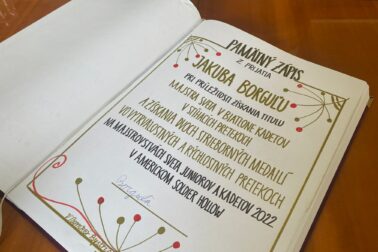 PAMÄTNÝ ZÁPIS
Z PRIJATIA
JAKUBA BORGUĽU
PRI PRÍLEŽITOSTI ZÍSKANIA TITULU
MAJSTRA SVETA V BIATLONE KADETOV
V STÍHACÍCH PRETEKOCH
A ZÍSKANIA DVOCH STRIEBORNÝCH MEDAILÍ
VO VYTRVALOSTNÝCH A RÝCHLOSTNÝCH PRETEKOCH
NA MAJSTROVSTVÁCH SVETA JUNIOROV A KADETOV 2022
V AMERICKOM SOLDIER HOLLOW
Borguľa